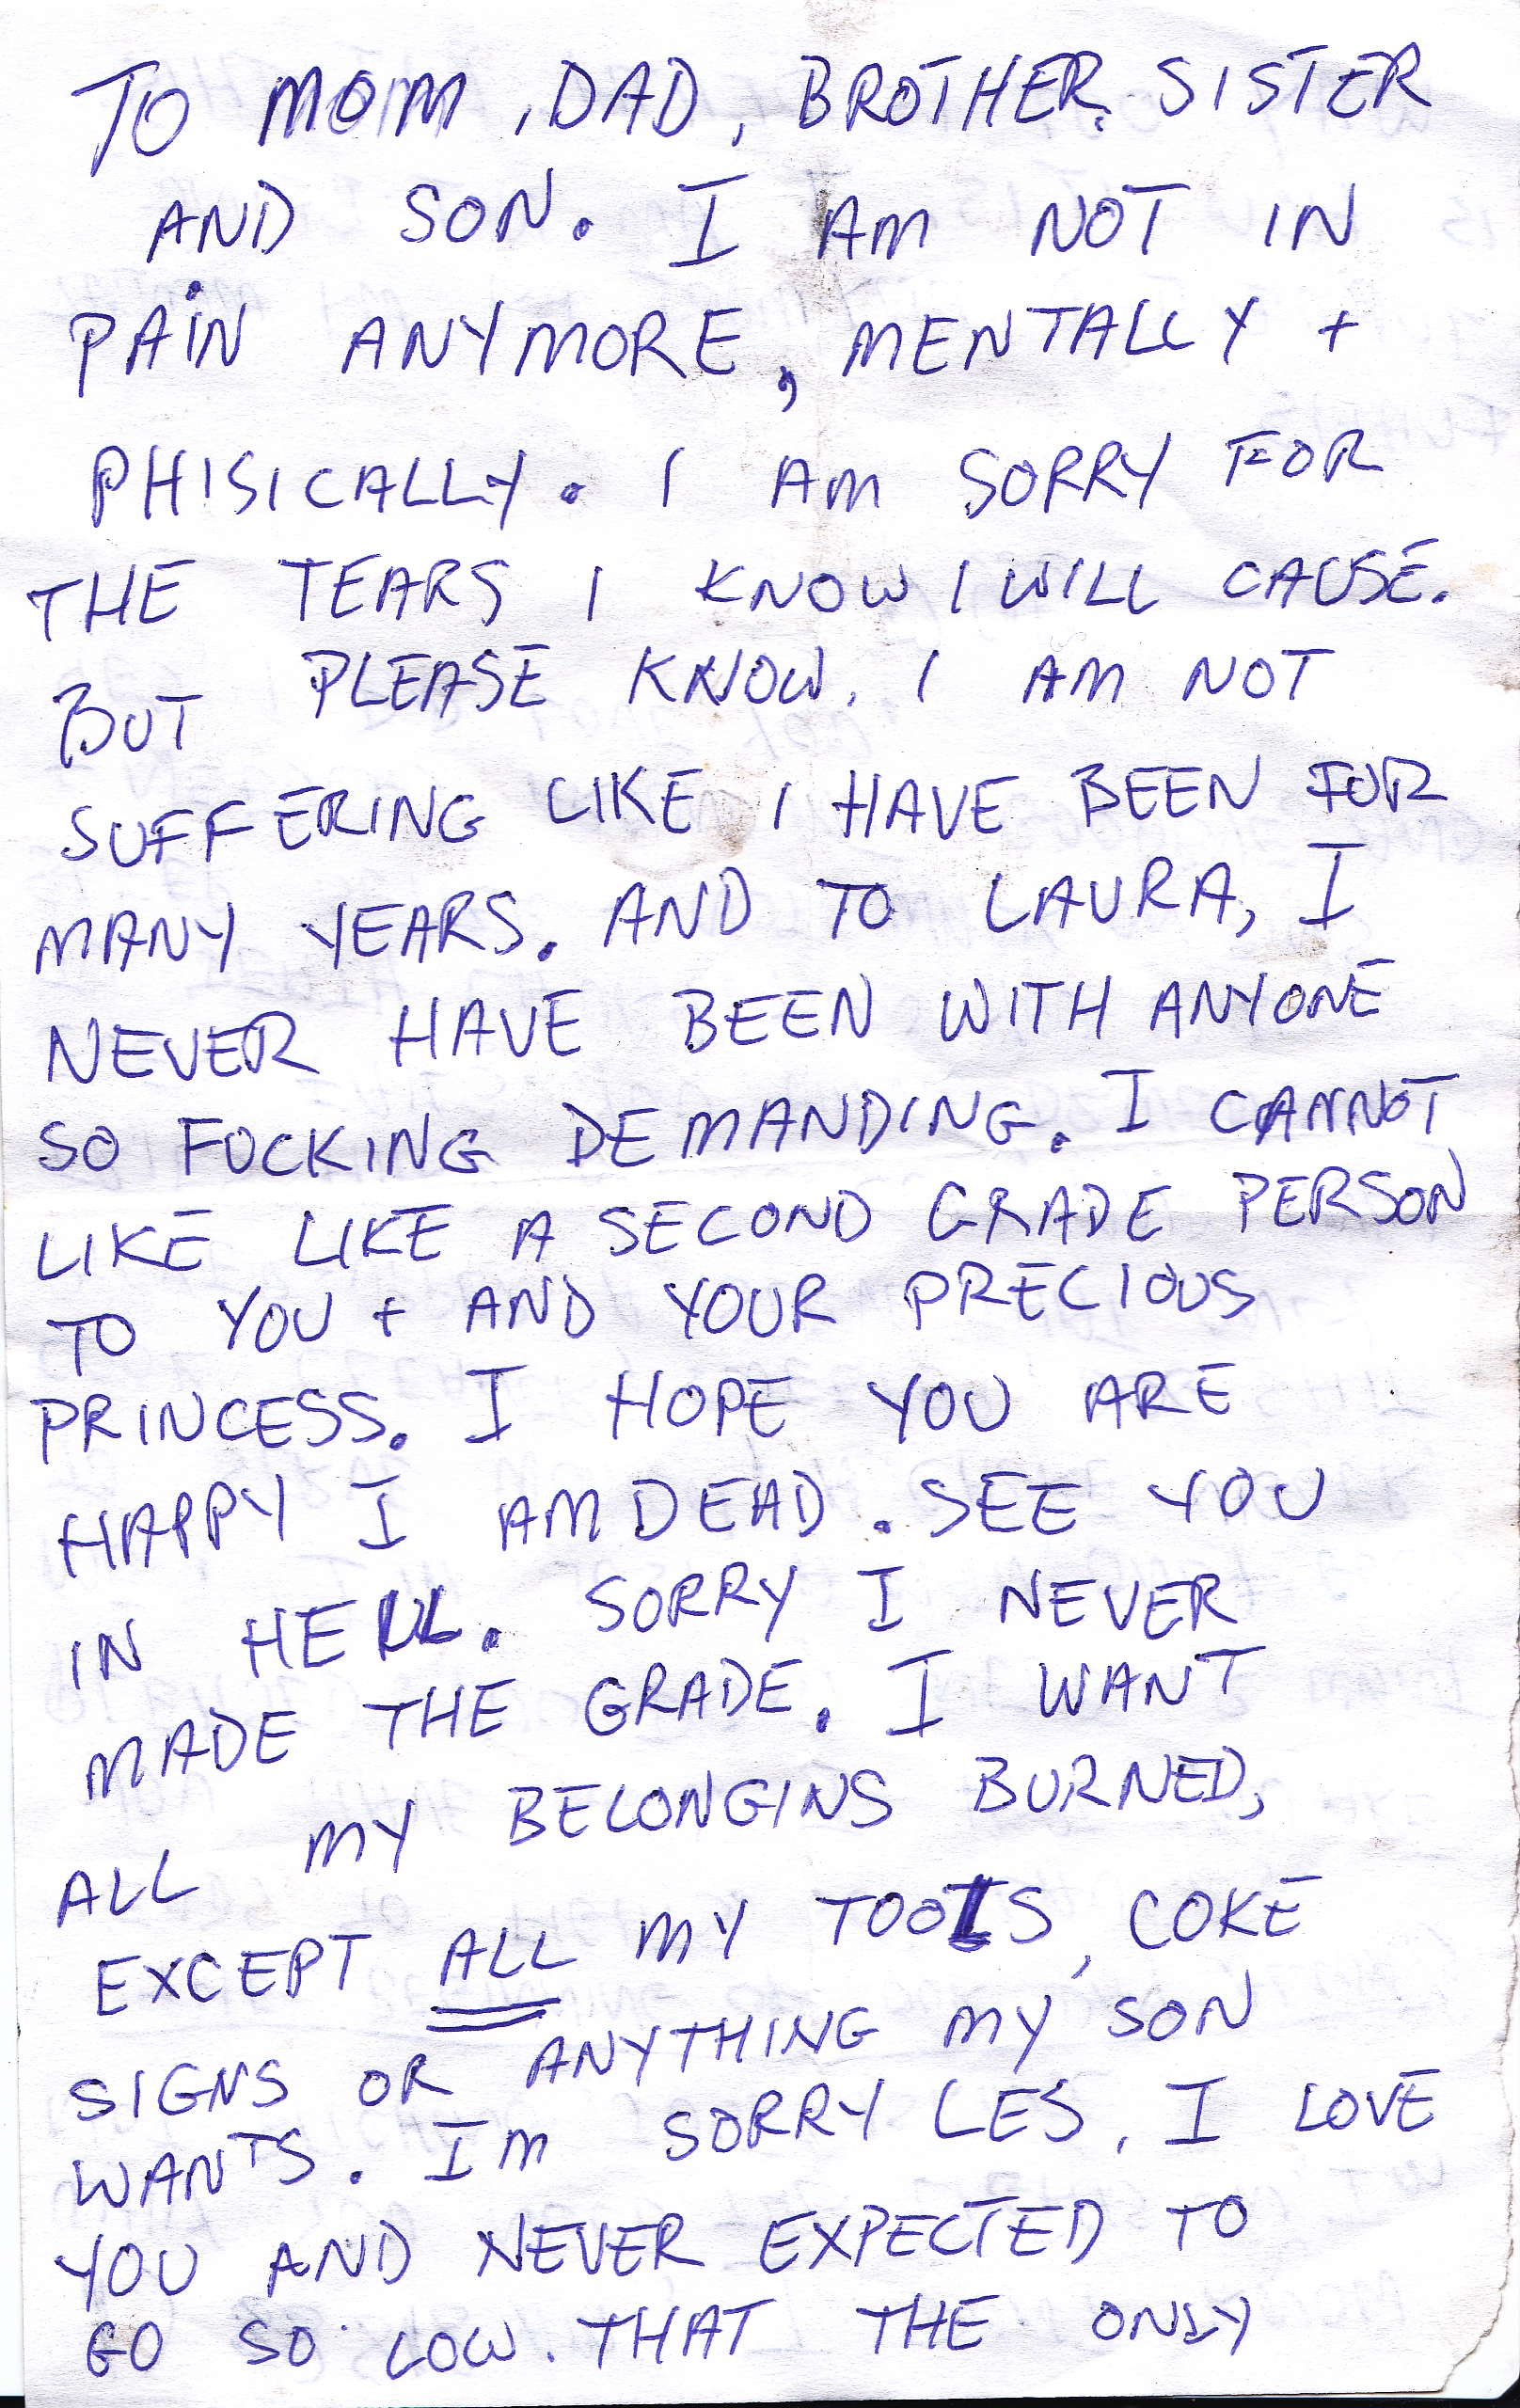 TO MOM, DAD, BROTHER, SISTER
AND SON. I AM NOT IN
PAIN ANYMORE, MENTALLY +
PHISICALLY. I AM SORRY FOR
THE TEARS I KNOW I WILL CAUSE.
BUT PLEASE KNOW. I AM NOT
SUFFERING LIKE I HAVE BEEN FOR
MANY YEARS. AND TO LAURA, I
NEVER HAVE BEEN WITH ANYONE
SO FUCKING DEMANDING. I CANNOT
LIKE LIKE A SECOND GRADE PERSON
TO YOU + AND YOUR PRECIOUS
PRINCESS. I HOPE YOU ARE
HAPPY I AM DEAD. SEE YOU
IN HELL. SORRY I NEVER
MADE THE GRADE. I WANT
ALL MY BELONGINS BURNED,
EXCEPT ALL MY TOOLS, COKE
SIGNS OR ANYTHING MY SON
WANTS. IM SORRY LES, I LOVE
YOU AND NEVER EXPECTED TO
GO SO LOW. THAT THE ONLY